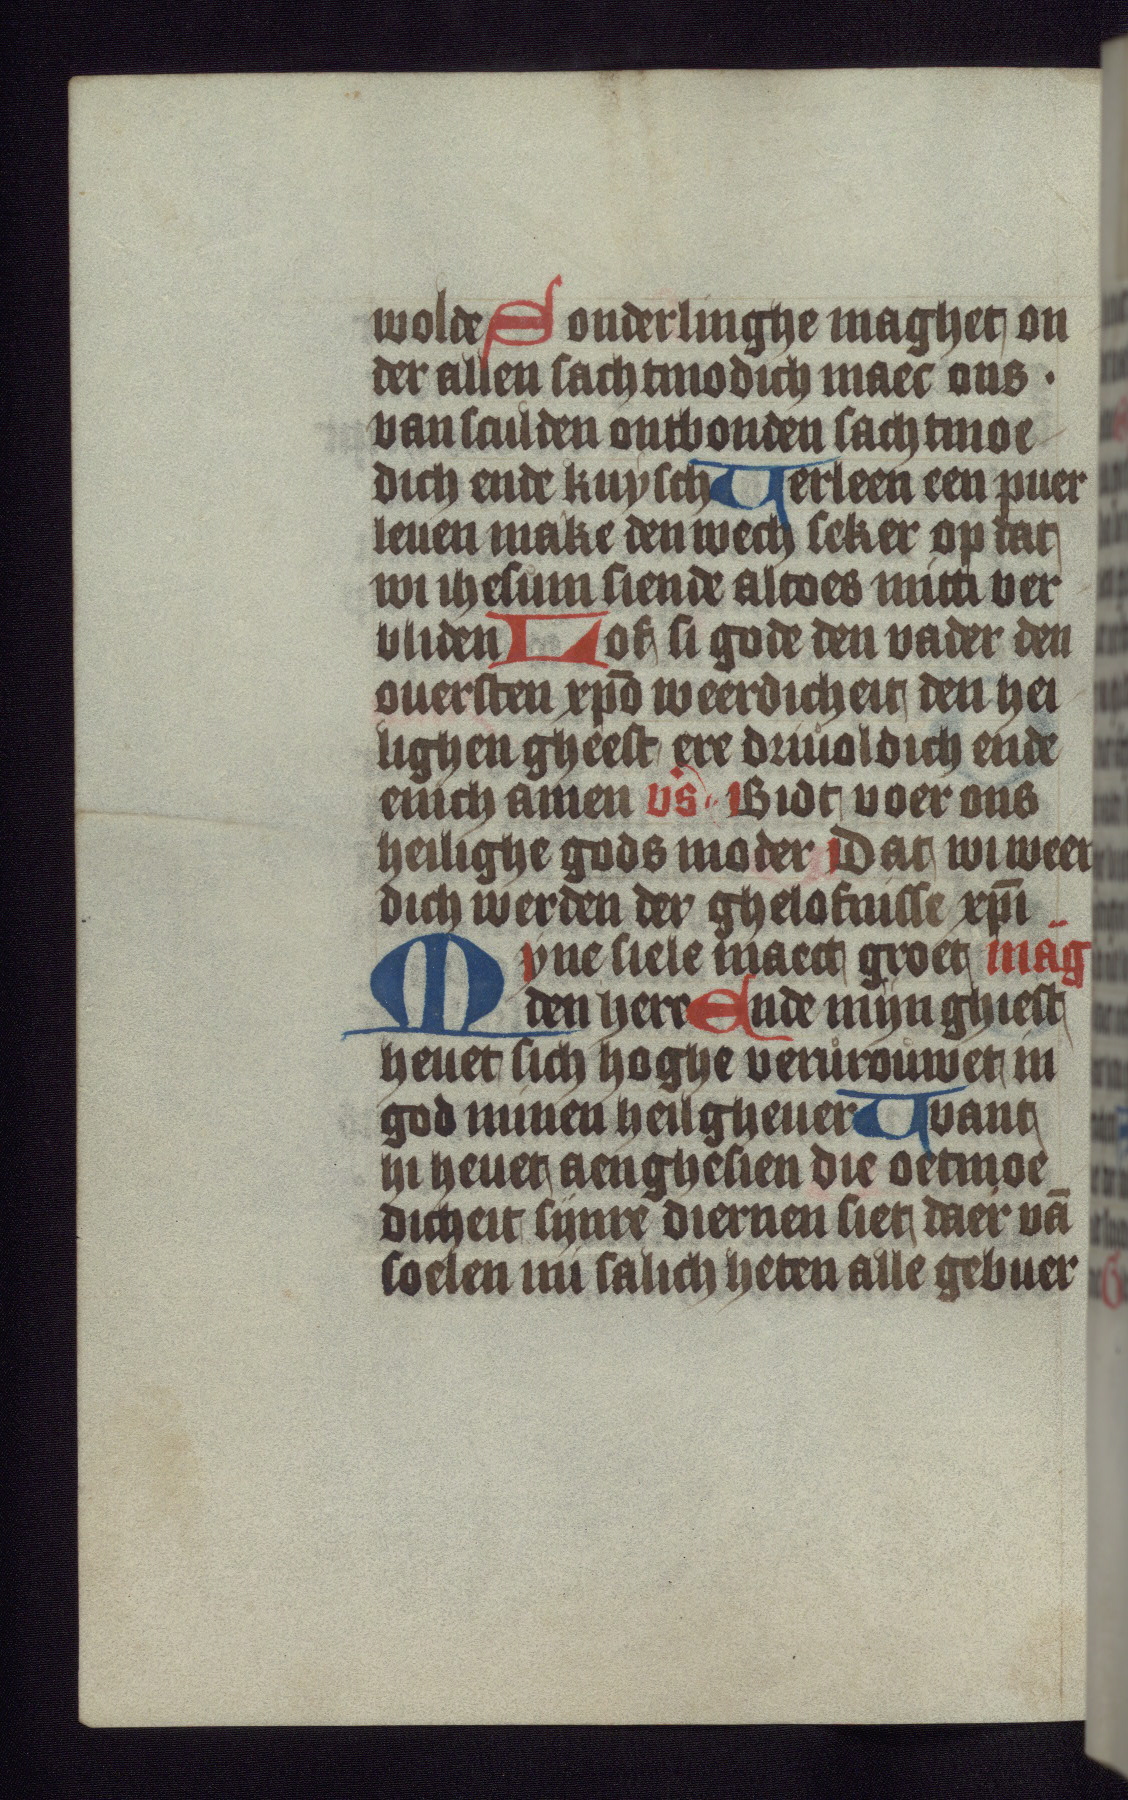 wolde Sonderlinghe maghet on
der allen sachtmodich maec ons ·
van sculden ontbonden sachtmoe
dich ende kuysch Verleen een puer
leuen make den wech seker op dat
wi ihesum siende altoes mitti ver
vliden Lof si gode den vader den
ouersten xpo̅ weerdicheit den hei
lighen gheest ere driuoldich ende
enich amen vs̅ Bidt voer ons
heilighe gods moder Dat wi weer
dich werden der ghelofnisse xpi̅
Myne siele maect groet mag̅
den here Ende mijn ghiest
heuet sich hoghe verurouwet in
god minen heilgheuer Want
hi heuet aenghesien die oetmoe
dicheit sijnre diernen siet daer va̅
soelen mi salich heten alle gebuer